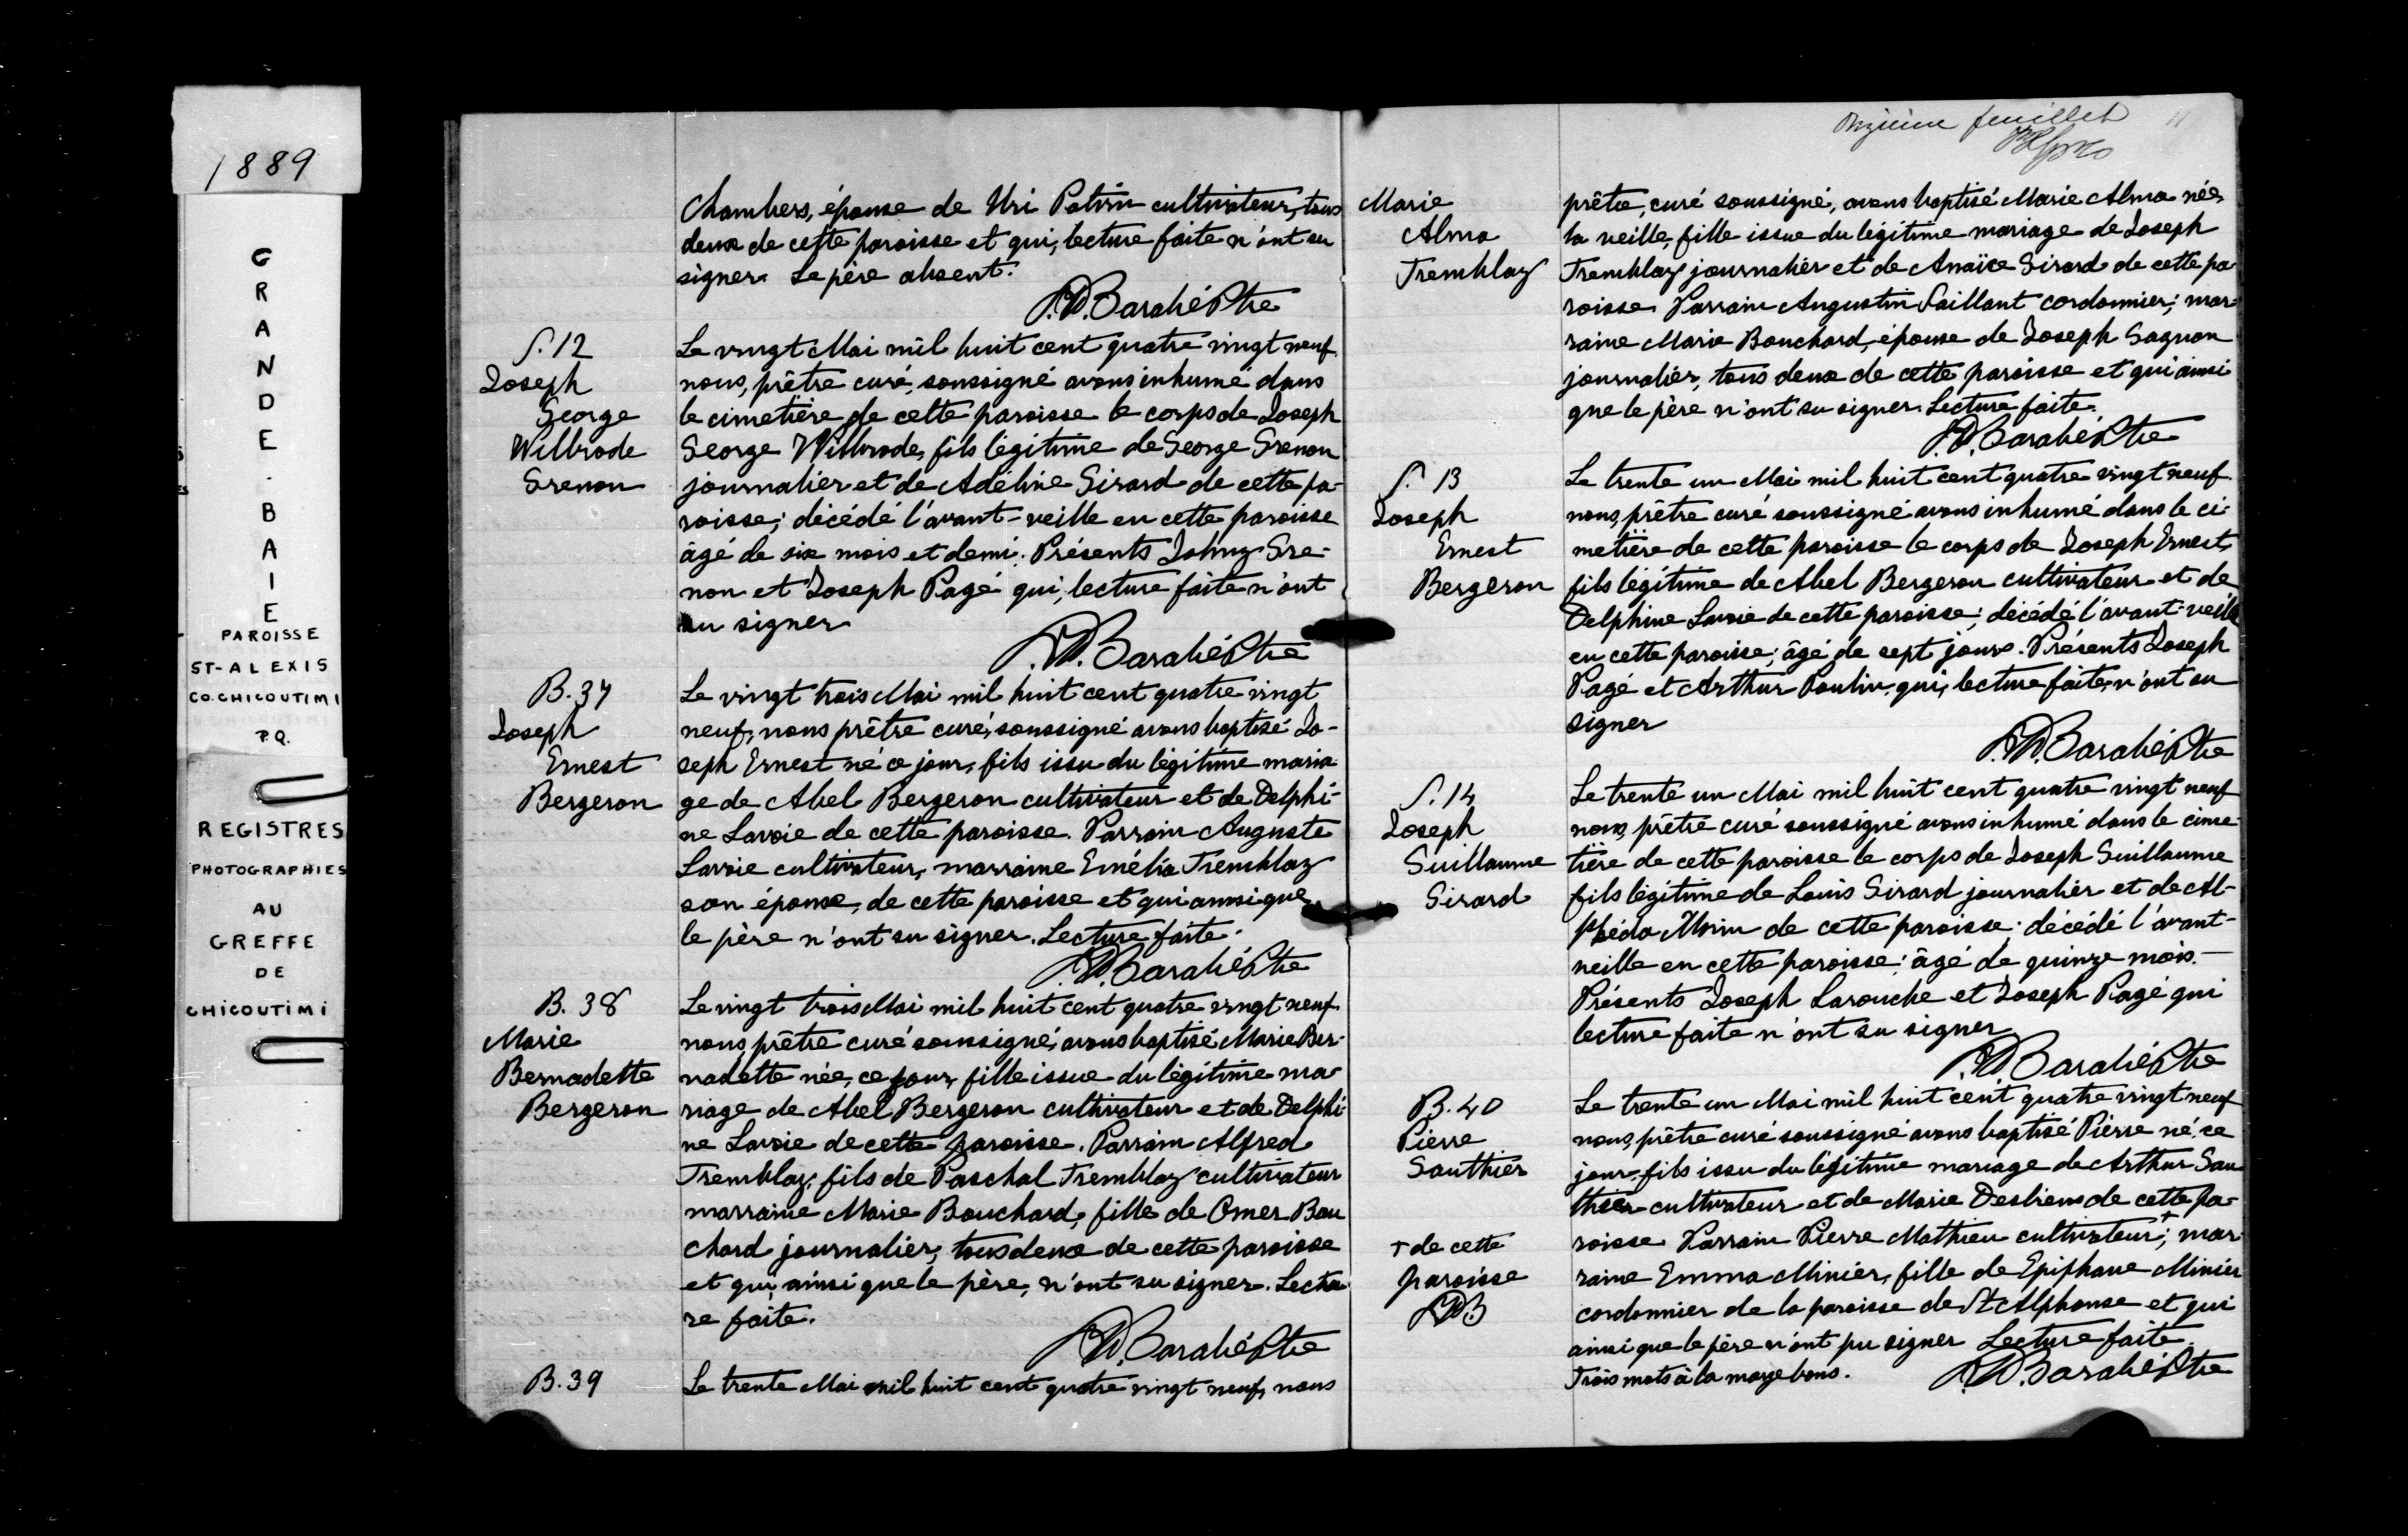 1889
GRANDE-BAIE
PAROISSE
ST-ALEXIS
CO. CHICOUTIMI
P.Q.
REGISTRES
PHOTOGRAPHIES
AU
GREFFE
DE
CHICOUTIMI
Chambers, épouse de Uri Potvin cultivateur, tous
deux de cette paroisse et qui, lecture faite n'ont su
signer. Le père absent.
Barabé Ptre
S. 12
Joseph
George
Wilbrode
Grenon
Le vingt Mai mil huit cent quatre vingt neuf
nous, prêtre curé, soussigné avons inhumé dans
le cimetière de cette paroisse le corps de Joseph
George Wilbrode, fils légitime de George Grenon
journalier et de Adéline Girard de cette pa-
roisse; décédé l'avant-veille en cette paroisse
âgé de six mois et demi. Présents Johny Gre-
non et Joseph Pagé qui, lecture faite n'ont
su signer
Barabé Ptre
B. 37
Joseph
Ernest
Bergeron
Le vingt trois Mai mil huit cent quatre vingt
neuf, nous prêtre curé, soussigné avons baptisé Jo-
seph Ernest né ce jour, fils issu du légitime maria
ge de Abel Bergeron cultivateur et de Delphi-
ne Lavoie de cette paroisse. Parrain Auguste
Lavoie cultivateur, marraine Emélia Tremblay
son épouse, de cette paroisse et qui ainsi que
le père n'ont su signer. Lecture faite.
Barabé Ptre
B. 38
Marie
Bernadette
Bergeron
Le vingt trois Mai mil huit cent quatre vingt neuf
nous, prêtre curé soussigné, avons baptisé Marie Ber-
nadette née, ce jour, fille issue du légitime ma-
riage de Abel Bergeron cultivateur et de Delphi-
ne Lavoie de cette paroisse. Parrain Alfred
Tremblay, fils de Paschal Tremblay cultivateur
marraine Marie Bouchard, fille de Omer Bou
chard journalier, tous deux de cette paroisse
et qui, ainsi que le père, n'ont su signer. Lectu
re faite.
Barabé Ptre
B. 39
Le trente Mai mil huit cent quatre vingt neuf, nous
Onzième feuillet
11
Marie
Alma
Tremblay
prêtre, curé soussigné, avons baptisé Marie Alma née,
la veille, fille issue du légitime mariage de Joseph
Tremblay journalier et de Anaïse Girard de cette pa-
roisse. Parrain Augustin Vaillant cordonnier; mar-
raine Marie Bouchard, épouse de Joseph Gagnon
journalier, tous deux de cette paroisse et qui ainsi
que le père n'ont su signer. Lecture faite.
Barabé Ptre
S. 13
Joseph
Ernest
Bergeron
Le trente un Mai mil huit cent quatre vingt neuf.
nous, prêtre curé soussigné avons inhumé dans le ci-
metière de cette paroisse le corps de Joseph Ernest,
fils légitime de Abel Bergeron cultivateur et de
Delphine Lavoie de cette paroisse; décédé l'avant-veille
en cette paroisse; âgé de sept jours. Présents Joseph
Pagé et Arthur Poulin, qui, lecture faite, n'ont su
signer
Barabé Ptre
S. 14
Joseph
Guillaume
Girard
Le trente un Mai mil huit cent quatre vingt neuf
nous, prêtre curé soussigné avons inhumé dans le cime-
tière de cette paroisse le corps de Joseph Guillaume
fils légitime de Louis Girard journalier et de Al-
phéda Morin de cette paroisse; décédé l'avant-
veille en cette paroisse; âgé de quinze mois.
Présents Joseph Larouche et Joseph Pagé qui
lecture faite n'ont su signer
Barabé Ptre
B. 40
Pierre
Gauthier
Le trente un Mai mil huit cent quatre vingt neuf
nous, prêtre curé soussigné avons baptisé Pierre né, ce
jour, fils issu du légitime mariage de Arthur Gau
thier cultivateur et de Marie Desbiens de cette pa-
roisse. Parrain Pierre Mathieu cultivateur +; mar-
raine Emma Minier, fille de Epiphane Minier
cordonnier de la paroisse de St Alphonse et qui
ainsi que le père n'ont pu signer Lecture faite.
Trois mots à la marge bons.
Barabé Ptre
+ de cette
paroisse